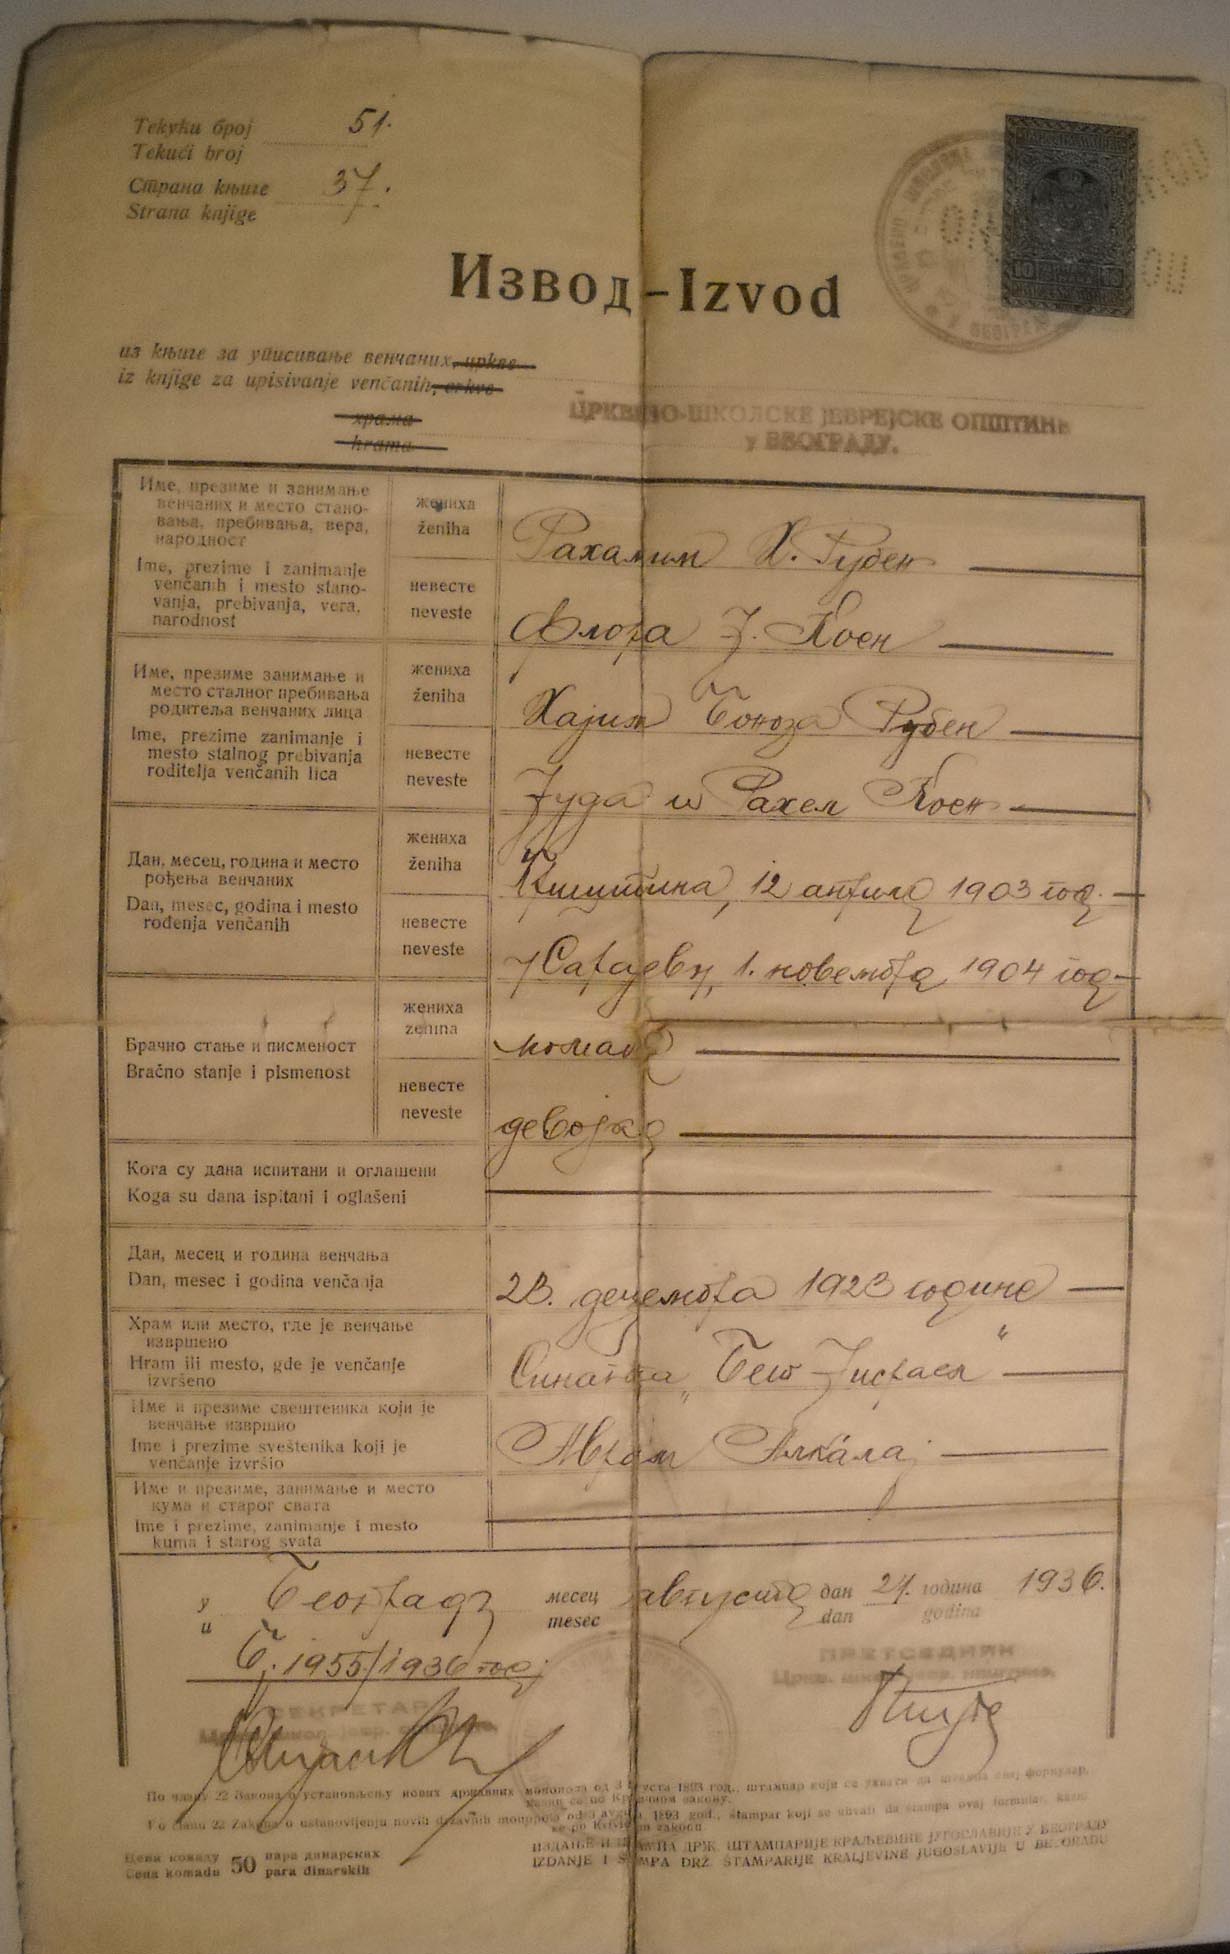 Текући број 51.
Tekući broj
Страна књиге 37.
Strana knjige
Извод - Izvod
из књиге за уписивање венчаних, цркве
iz knjige za upisivanje venčanih, crkve
храма
hrama
ЦРКВЕНО-ШКОЛСКЕ ЈЕВРЕЈСКЕ ОПШТИНЕ
у БЕОГРАДУ.
Име, презиме и занимање
венчаних и место стано-
вања, пребивања, вера,
народност
Ime, prezime i zanimanje
venčanih i mesto stano-
vanja, prebivanja, vera,
narodnost
жениха
ženiha
Рахамим Х. Рубен
невесте
neveste
Флора Ј. Коен
Име, презиме занимање и
место сталног пребивања
родитеља венчаних лица
Ime, prezime zanimanje i
mesto stalnog prebivanja
roditelja venčanih lica
жениха
ženiha
Хајим Боноза Рубен
невесте
neveste
Јуда и Рахел Коен
Дан, месец, година и место
рођења венчаних
Dan, mesec, godina i mesto
rođenja venčanih
жениха
ženiha
Приштина, 12 априла 1903 год.
невесте
neveste
у Сарајеву, 1. новембра 1904 год
Брачно стање и писменост
Bračno stanje i pismenost
жениха
ženiha
момак
невесте
neveste
девојка
Кога су дана испитани и оглашени
Koga su dana ispitani i oglašeni
Дан, месец и година венчања
Dan, mesec i godina venčanja
23. децембра 1923 године
Храм или место, где је венчање
извршено
Hram ili mesto, gde je venčanje
izvršeno
Синагога „Бет Јисраел“
Име и презиме свештеника који је
венчање извршио
Ime i prezime sveštenika koji je
venčanje izvršio
Аврам Алкалај
Име и презиме, занимање и место
кума и старог свата
Ime i prezime, zanimanje i mesto
kuma i starog svata
у Београду месец августа дан 24. година 1936.
u mesec dan godina
Бј. 1955/1936 год
ПРЕТСЕДНИК
СЕКРЕТАР
По члану 22 Закона о установљењу нових државних монопола од 3 августа 1893 год., штампар који се ухвати да штампа овај формулар,
казни се по Кривичном закону.
Po članu 22 Zakona o ustanovljenju novih državnih monopola od 3 avgusta 1893 god., štampar koji se uhvati da štampa ovaj formular, kazni
se po Krivičnom zakonu
Цена комаду 50 пара динарских
Cena komadu para dinarskih
ИЗДАЊЕ И ШТАМПА ДРЖ. ШТАМПАРИЈЕ КРАЉЕВИНЕ ЈУГОСЛАВИЈЕ У БЕОГРАДУ
IZDANJE I ŠTAMPA DRŽ. ŠTAMPARIJE KRALJEVINE JUGOSLAVIJE U BEOGRADU